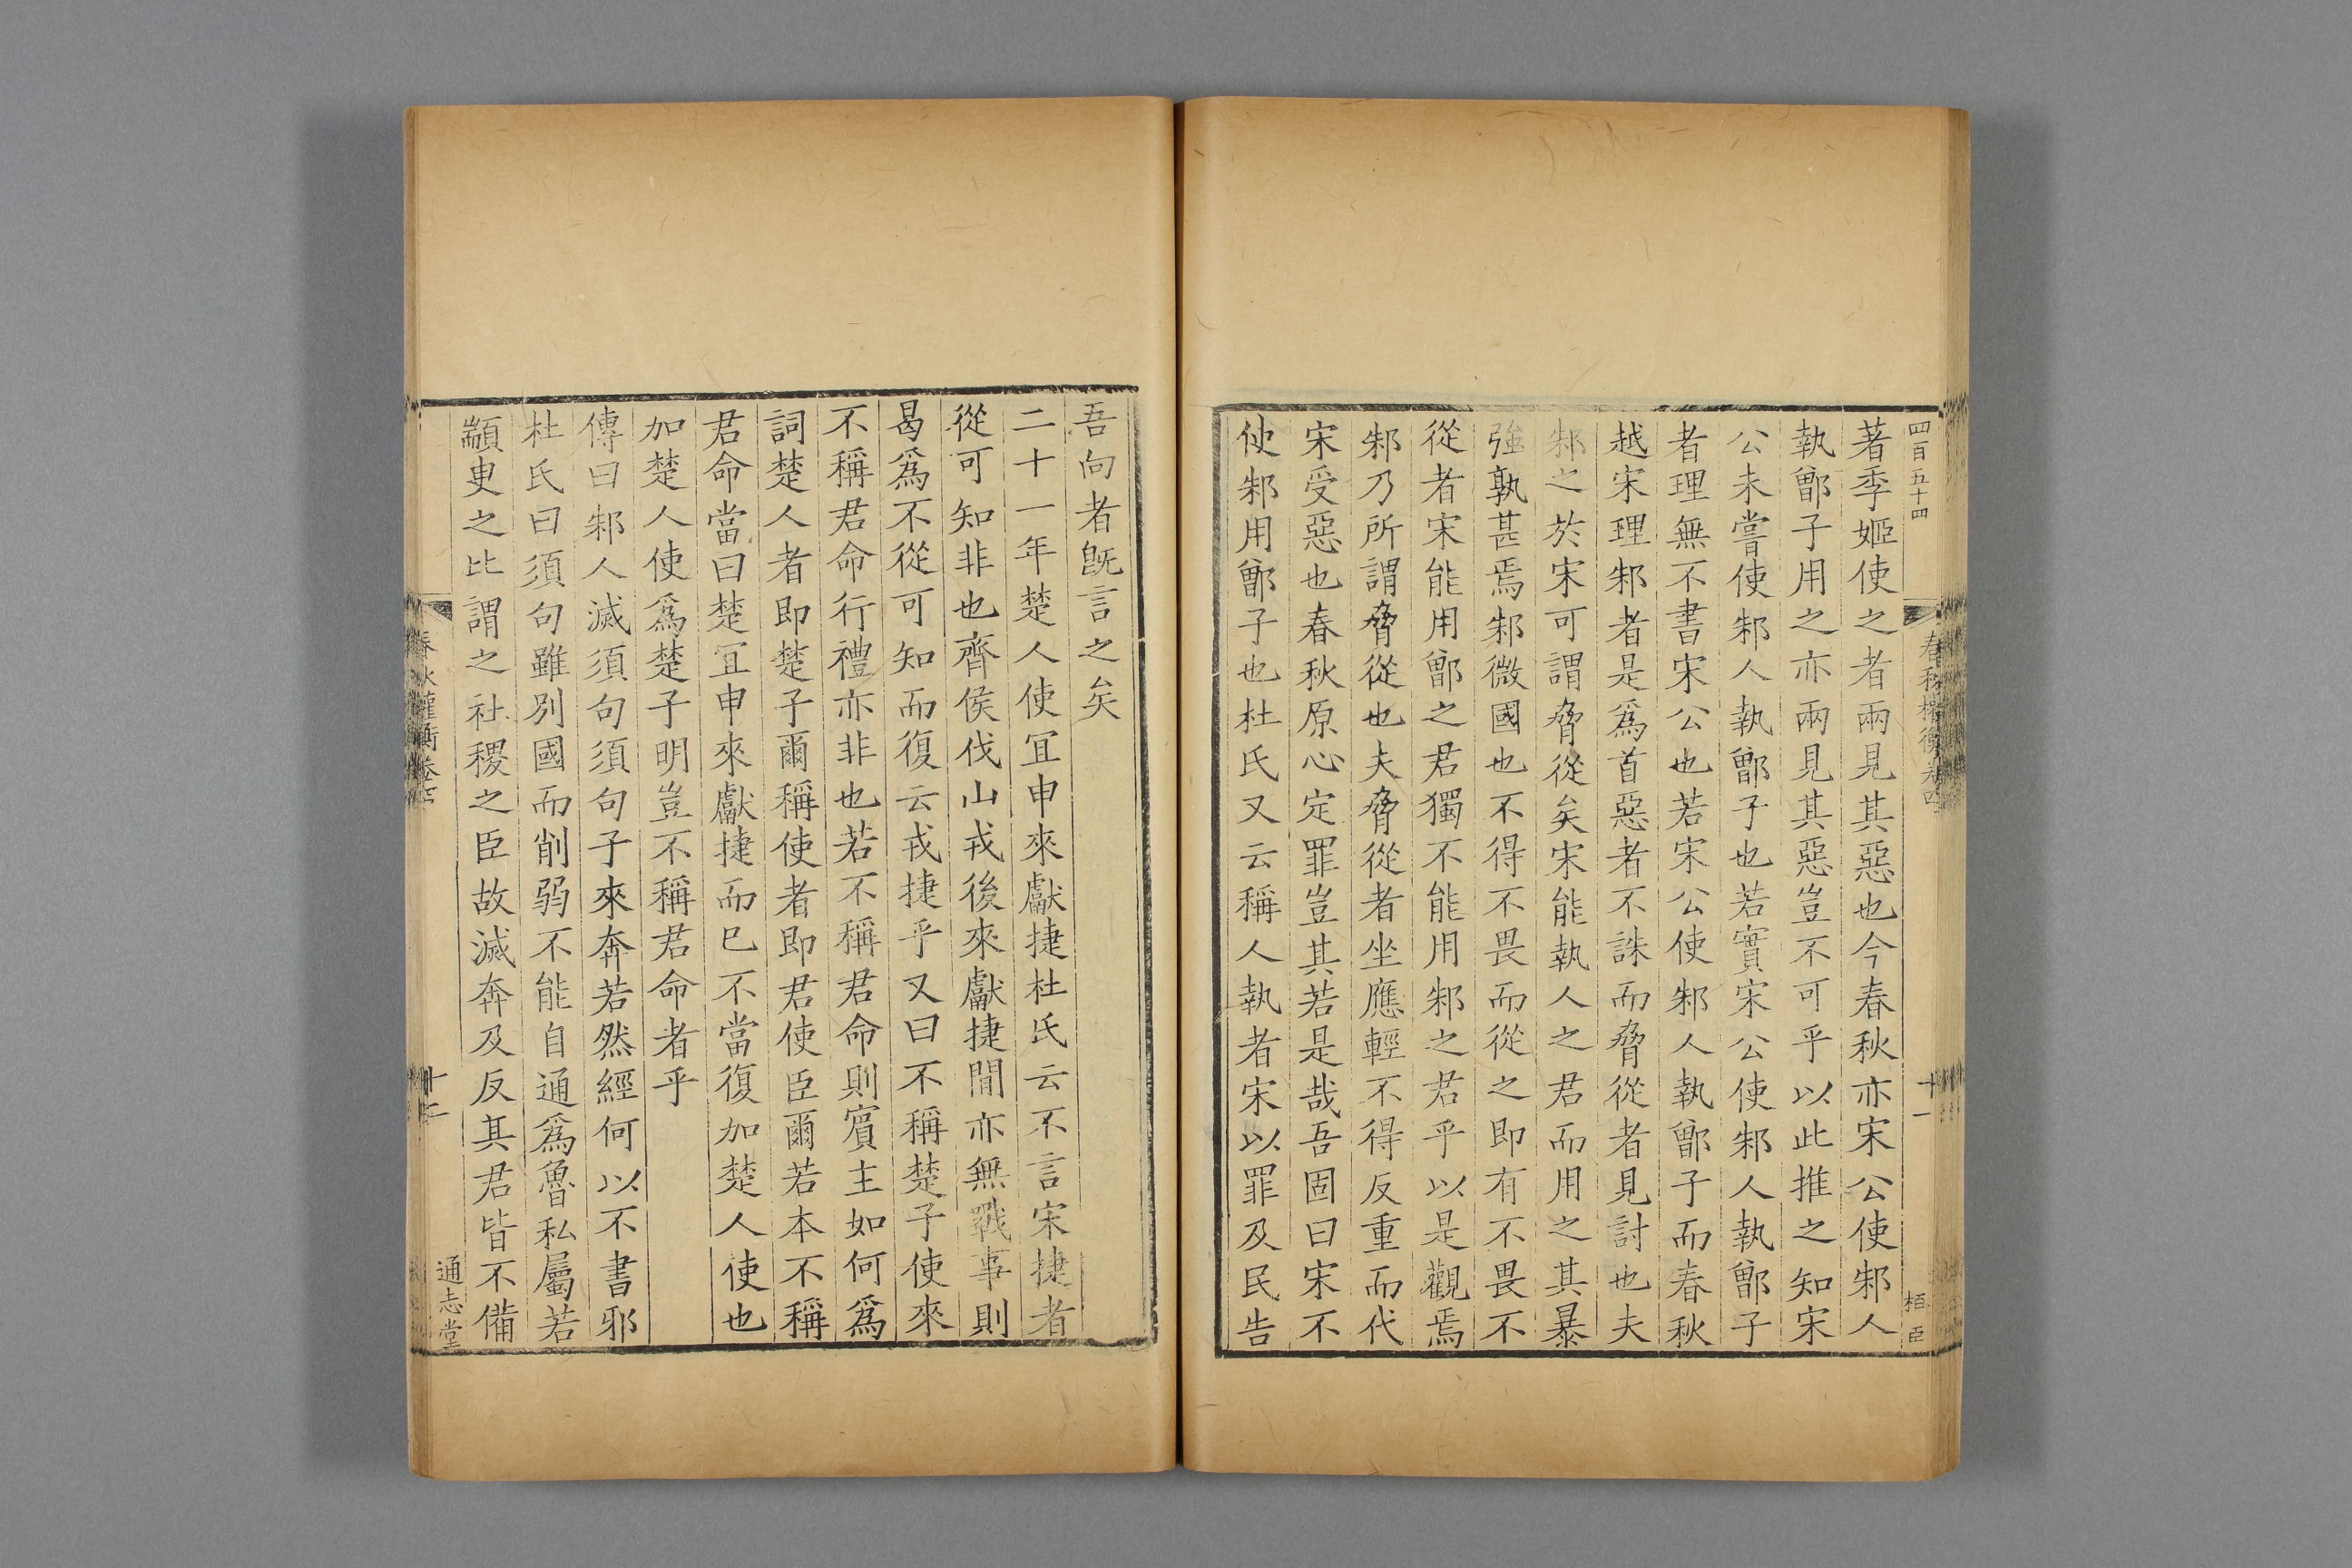 四百五十四
春秋權衡卷四
十一
栢臣
著季姬使之者兩見其惡也今春秋亦宋公使邾人
執鄫子用之亦兩見其惡豈不可乎以此推之知宋
公未嘗使邾人執鄫子也若實宋公使邾人執鄫子
者理無不書宋公也若宋公使邾人執鄫子而春秋
越宋理邾者是爲首惡者不誅而脅從者見討也夫
邾之於宋可謂脅從矣宋能執人之君而用之其暴
強孰甚焉邾微國也不得不畏而從之即有不畏不
從者宋能用鄫之君獨不能用邾之君乎以是觀焉
邾乃所謂脅從也夫脅從者坐應輕不得反重而代
宋受惡也春秋原心定罪豈其若是哉吾固曰宋不
使邾用鄫子也杜氏又云稱人執者宋以罪及民告
吾向者旣言之矣
二十一年楚人使宜申來獻捷杜氏云不言宋捷者
從可知非也齊侯伐山戎後來獻捷間亦無戰事則
曷爲不從可知而復云戎捷乎又曰不稱楚子使來
不稱君命行禮亦非也若不稱君命則賓主如何爲
詞楚人者即楚子爾稱使者即君使臣爾若本不稱
君命當曰楚宜申來獻捷而已不當復加楚人使也
加楚人使爲楚子明豈不稱君命者乎
傳曰邾人滅須句須句子來奔若然經何以不書邪
杜氏曰須句雖別國而削弱不能自通爲魯私屬若
顓臾之比謂之社稷之臣故滅奔及反其君皆不備
春秋權衡卷
十二
通志堂